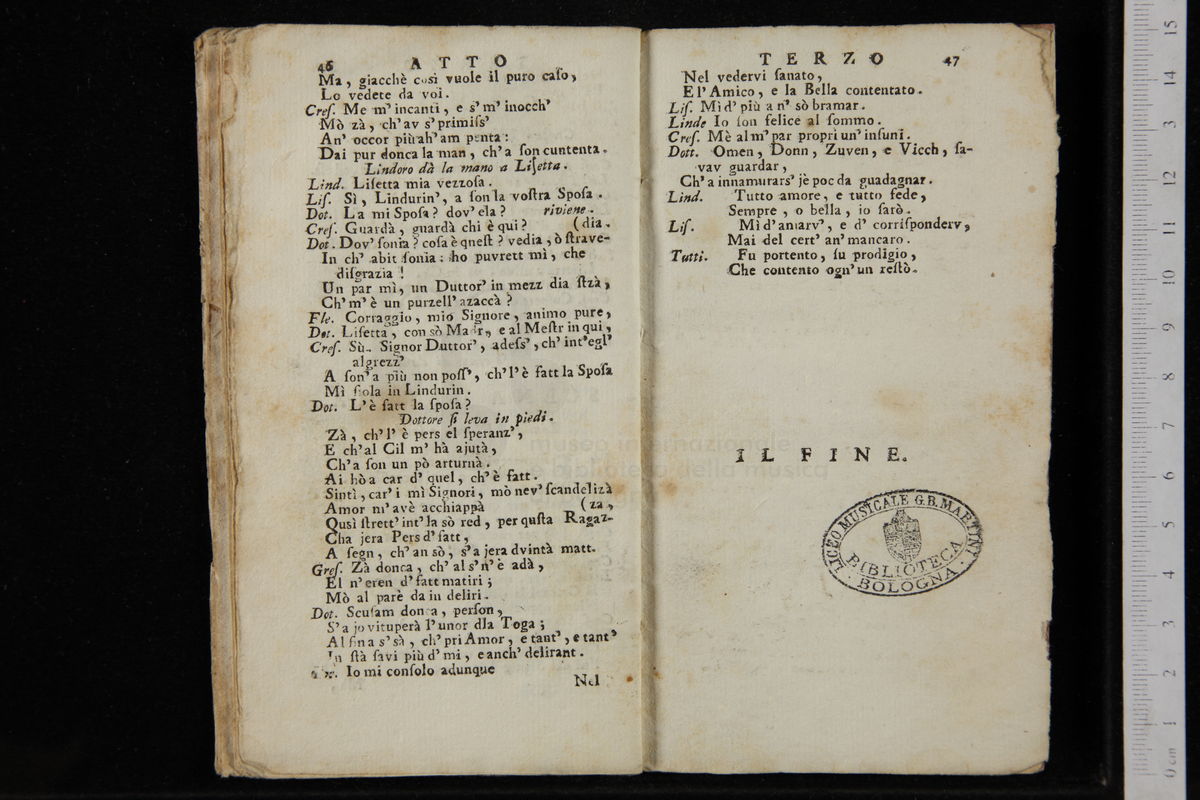 46 ATTO
Ma, giacchè così vuole il puro caſo,
Lo vedete da voi.
Creſ. Me m' incanti, e s' m' inocch'
Mò zà, ch' av s' primiſs'
An' occor più ah' am penta:
Dai pur donca la man, ch' a ſon cuntenta.
Lindoro dà la mano a Liſetta.
Lind. Liſetta mia vezzoſa.
Liſ. Sì, Lindurin', a ſon la voſtra Spoſa.
Dot. La mi Spoſa? dov' ela? riviene.
Creſ. Guardà, guardà chi è qui? (dia.
Dot. Dov' ſonia? coſa è qneſt? vedia, ò ſtrave-
In ch' abit ſonia: ho puvrett mì, che
diſgrazia!
Un par mì, un Duttor' in mezz dia ſtzà,
Ch' m' è un purzell' azaccà?
Fle. Corraggio, mio Signore, animo pure,
Dot. Liſetta, con sò Madr, e al Meſtr in qui,
Creſ. Sù. Signor Duttor', adeſs', ch' int' egl'
algrezz'
A ſon' a più non poſſ', ch' l' è fatt la Spoſa
Mì fiola in Lindurin.
Dot. L' è fatt la ſpoſa?
Dottore ſi leva in piedi.
Zà, ch' l' è pers el ſperanz',
E ch' al Cil m' hà ajutà,
Ch' a ſon un pò arturnà.
Ai hò a car d' quel, ch' è fatt.
Sintì, car' i mì Signori, mò nev' ſcandelizà
Amor m' avè acchiappà (za,
Qusì ſtrett' int' la sò red, per quſta Ragaz-
Cha jera Pers d' fatt,
A ſegn, ch' an sò, s' a jera dvintà matt.
Greſ. Zà donca, ch' al s' n' è adà,
El n' eren d' fatt matiri;
Mò al parè da in deliri.
Dot. Scuſam donca, perſon,
S' a jo vituperà l' unor dla Toga;
Al fin a s' sà, ch' pri Amor, e tant', e tant'
In ſtà ſavi più d' mi, e anch' delirant.
Io mi conſolo adunque
Nel
TERZO 47
Nel vedervi ſanato,
E l' Amico, e la Bella contentato.
Liſ. Mì d' più a n' sò bramar.
Linde Io ſon felice al ſommo.
Creſ. Mè al m' par propri un' inſunì.
Dott. Omen, Donn, Zuven, e Vicch, ſa-
vav guardar,
Ch' a innamurars' jè poc da guadagnar.
Lind. Tutto amore, e tutto fede,
Sempre, o bella, io ſarò.
Liſ. Mì d' amarv', e d' corriſponderv,
Mai del cert' an' mancaro.
Tutti. Fu portento, fu prodigio,
Che contento ogn' un reſtò.
IL FINE.
LICEO MUSICALE G.B. MARTINI
BIBLIOTECA
BOLOGNA
museo internazionale
e biblioteca della musica